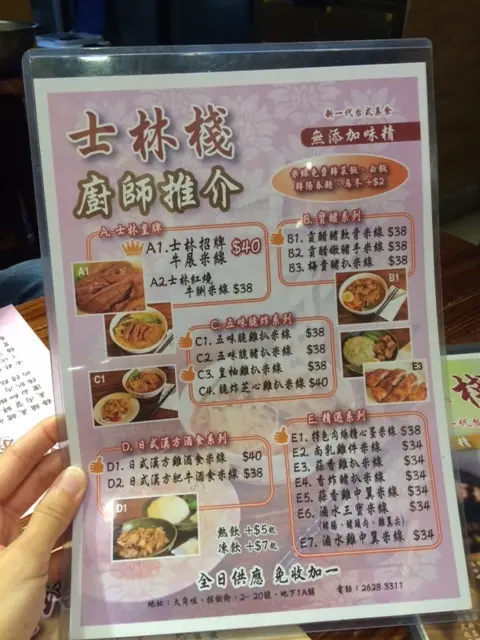 士林棧
廚師推介
新一代台式美食
無添加味精
米線免費轉菜飯、白飯
辣陽春麵、烏冬 +$2
A. 士林皇牌
A1. 士林招牌
牛展米線 $40
A2. 士林紅燒
牛腩米線 $38
A1
B. 貢豬系列
B1. 貢醋豬軟骨米線 $38
B2. 貢醋嫩豬手米線 $38
B3. 梅香豬扒米線 $38
B1
C. 五味脆炸系列
C1. 五味脆雞扒米線 $38
C2. 五味脆豬扒米線 $38
C3. 皇柚雞扒米線 $38
C4. 脆炸芝心雞扒米線 $40
C1
E3
D. 日式漢方酒食系列
D1. 日式漢方雞酒食米線 $40
D2. 日式漢方肥牛酒食米線 $38
D1
E. 精選系列
E1. 特色肉燥糖心蛋米線 $38
E2. 南乳雞件米線 $34
E3. 蒜香雞扒米線 $34
E4. 香炸豬扒米線 $34
E5. 蒜香雞中翼米線 $34
E6. 滷水三寶米線 $34
E7. 滷水雞中翼米線 $34
熱飲 +$5起
凍飲 +$7起
全日供應 免收加一
地址:大角咀,櫻樹街,2-20號,地下1A舖
電話:2628 3311